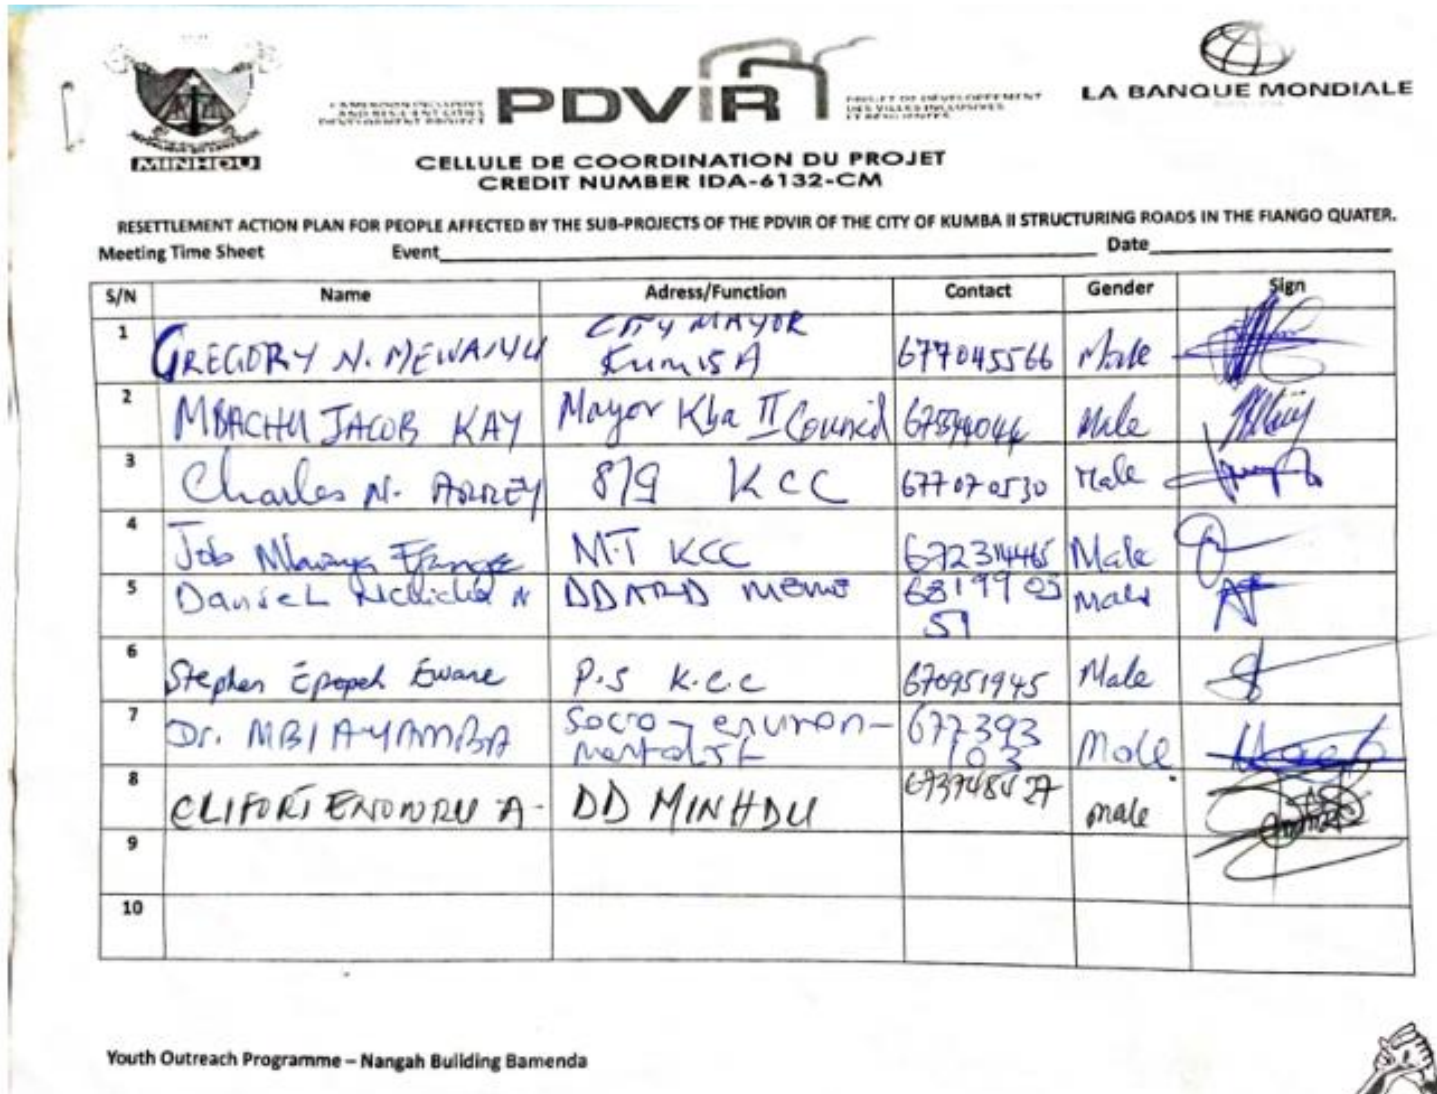 MINHDU
CAMEROON INCLUSIVE
AND RESILIENT CITIES
DEVELOPMENT PROJECT
PDVIR
PROJET DE DEVELOPPEMENT
DES VILLES INCLUSIVES
ET RESILIENTES
LA BANQUE MONDIALE
CELLULE DE COORDINATION DU PROJET
CREDIT NUMBER IDA-6132-CM
RESETTLEMENT ACTION PLAN FOR PEOPLE AFFECTED BY THE SUB-PROJECTS OF THE PDVIR OF THE CITY OF KUMBA II STRUCTURING ROADS IN THE FIANGO QUATER.
Meeting Time Sheet Event Date
S/N Name Adress/Function Contact Gender Sign
1 GREGORY N. CITY MAYOR KUMBA 677045566 Male
2 MBACHU JACOB KAY Mayor Kba II Council Male
3 Charles N. ARREY KCC 677070530 Male
4 Job M.T KCC 672314465 Male
5 DanieL N DDARD MEME Male
6 Stephen Epopeh Ewane P.S K.C.C 670951945 Male
7 Dr. MBI AYAMBA Socio-environ-
mentalist 677393
103 Male
8 CLIFORT A. DD MINHDU male
9
10
Youth Outreach Programme – Nangah Building Bamenda